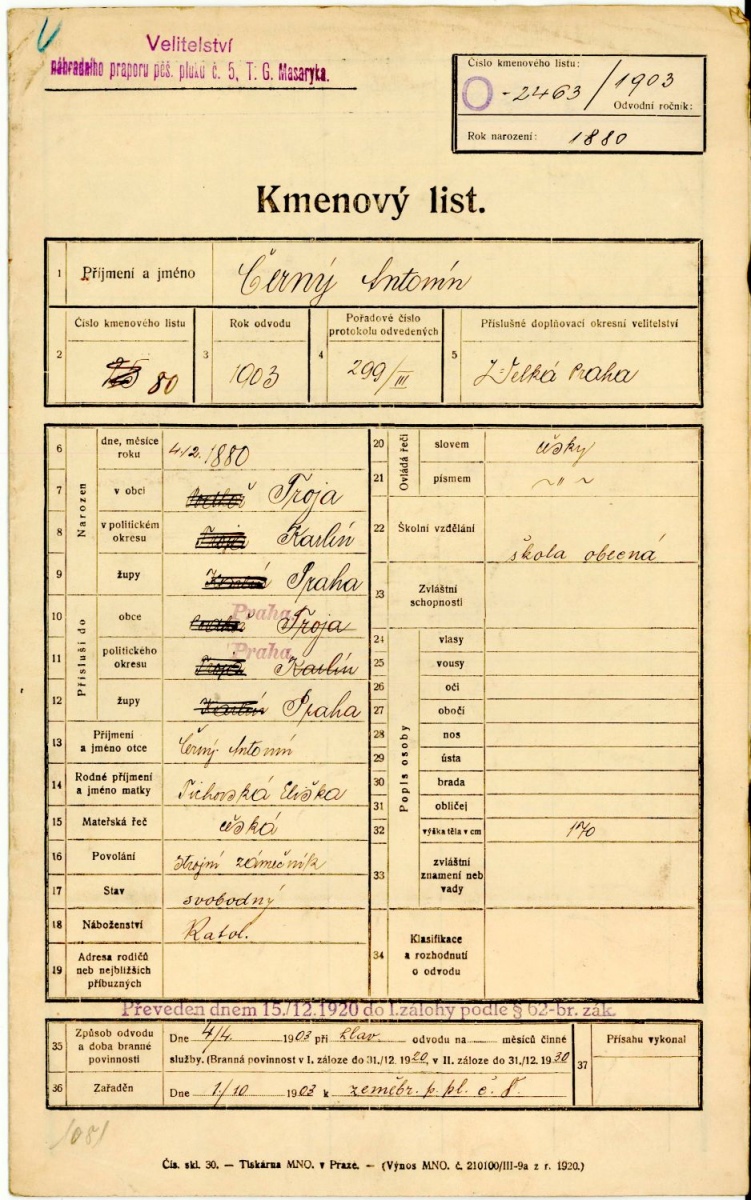 Velitelství
náhradního praporu pěš. pluku č. 5, T. G. Masaryka.
Číslo kmenového listu:
O-2463/1903
Odvodní ročník:
Rok narození: 1880
Kmenový list.
1 Příjmení a jméno Černý Antonín
2 Číslo kmenového listu 80
3 Rok odvodu 1903
4 Pořadové číslo protokolu odvedených 299/III
5 Příslušné doplňovací okresní velitelství Velká Praha
Narozen
6 dne, měsíce roku 4/2. 1880
7 v obci Troja
8 v politickém okresu Karlín
9 župy Praha
Přísluší do
10 obce Praha Troja
11 politického okresu Praha Karlín
12 župy Praha
13 Příjmení a jméno otce Černý Antonín
14 Rodné příjmení a jméno matky Tichovská Eliška
15 Mateřská řeč česká
16 Povolání strojní zámečník
17 Stav svobodný
18 Náboženství Katol.
19 Adresa rodičů neb nejbližších příbuzných
Ovládá řeči
20 slovem česky
21 písmem ~ " ~
22 Školní vzdělání škola obecná
23 Zvláštní schopnosti
Popis osoby
24 vlasy
25 vousy
26 oči
27 obočí
28 nos
29 ústa
30 brada
31 obličej
32 výška těla v cm 170
33 zvláštní znamení neb vady
34 Klasifikace a rozhodnutí o odvodu
Převeden dnem 15./12.1920 do I.zálohy podle § 62-br. zák.
35 Způsob odvodu a doba branné povinnosti
Dne 4/4. 1903 při hlav. odvodu na měsíců činné
služby. (Branná povinnost v I. záloze do 31./12. 1920, v II. záloze do 31./12. 1930
36 Zařaděn Dne 1./10 1903 k zeměbr. p. pl. č. 8.
37 Přísahu vykonal
1081
Čís. skl. 30. — Tiskárna MNO. v Praze. — (Výnos MNO. č. 210100/III-9a z r. 1920.)